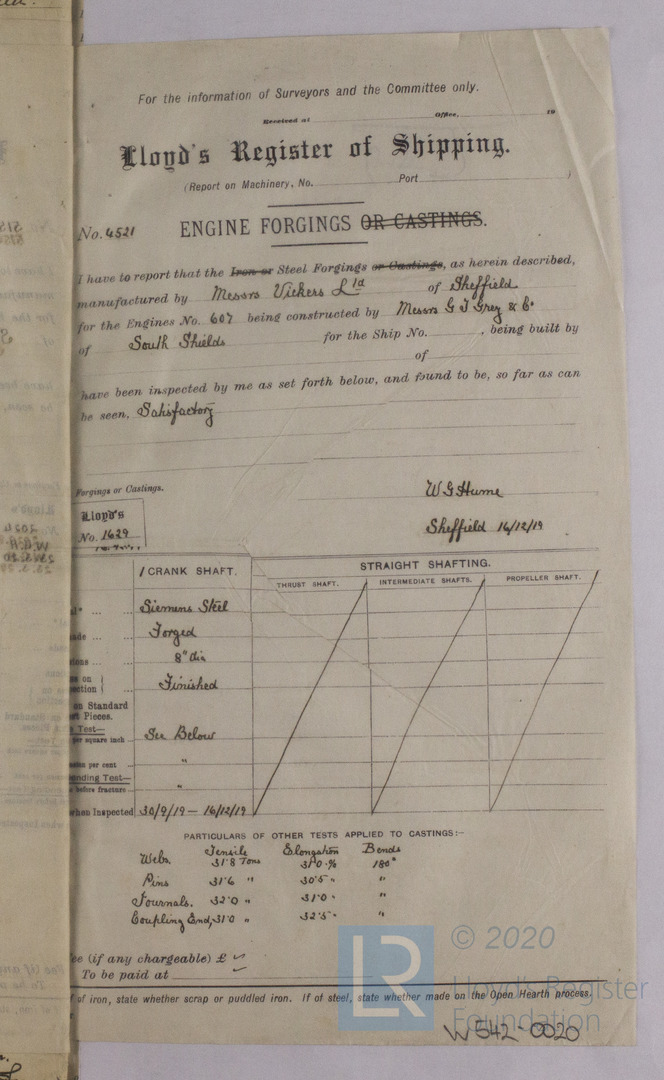 For the information of Surveyors and the Committee only.
Received at Office, 19
Lloyd's Register of Shipping.
(Report on Machinery, No. Port )
No. 4521 ENGINE FORGINGS OR CASTINGS.
I have to report that the Iron or Steel Forgings or Castings, as herein described,
manufactured by Messrs Vickers Ltd of Sheffield
for the Engines No. 607 being constructed by Messrs G T Grey & Co
of South Shields for the Ship No. , being built by
of
have been inspected by me as set forth below, and found to be, so far as can
be seen, Satisfactory
Forgings or Castings.
W G Hume
Lloyd's
No. 1629
Sheffield 16/12/19
1 CRANK SHAFT. STRAIGHT SHAFTING.
THRUST SHAFT. INTERMEDIATE SHAFTS. PROPELLER SHAFT.
Siemens Steel
Forged
8" dia
Finished
on Standard
Pieces.
Test—
per square inch See Below
per cent "
before fracture "
when Inspected 30/9/19 — 16/12/19
PARTICULARS OF OTHER TESTS APPLIED TO CASTINGS:—
Tensile Elongation Bends
Webs. 31.8 Tons 31.0 % 180°
Pins 31.6 " 30.5 " "
Journals. 32.0 " 31.0 " "
Coupling End, 31.0 " 32.5 " "
(if any chargeable) £
To be paid at
of iron, state whether scrap or puddled iron. If of steel, state whether made on the Open Hearth process.
LR
© 2020
Lloyd's Register
Foundation
W542-0020